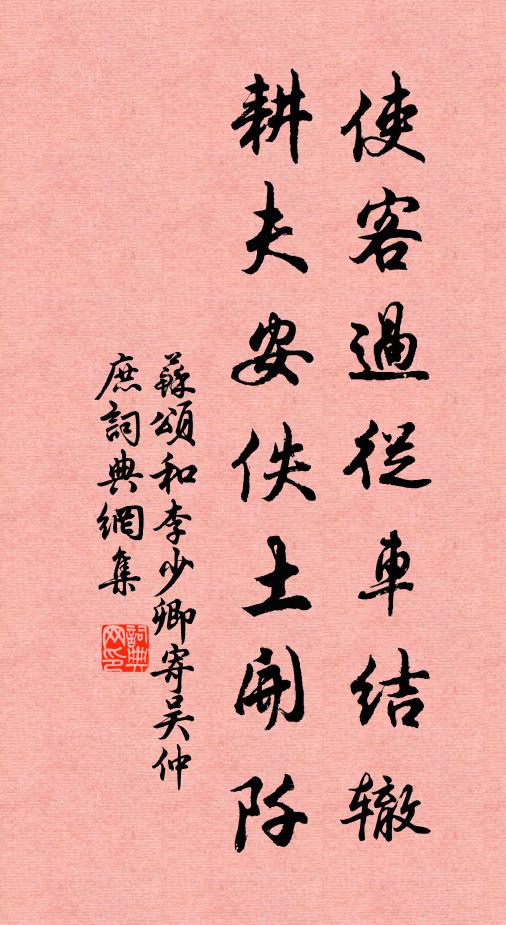 使客過從車结辙
耕夫安佚土開阡
蘇頌和李少卿寄吴仲
庶詞典網集
詞典网印